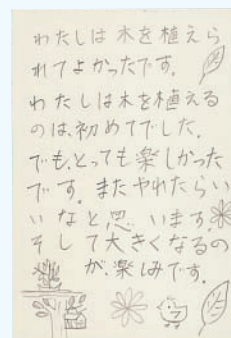 わたしは木を植えら
れてよかったです。
わたしは木を植える
のは、初めてでした。
でも、とっても楽しかった
です。またやれたらい
いなと思います。
そして大きくなるの
が、楽しみです。